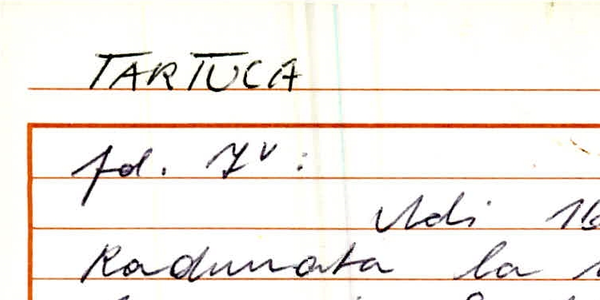 TARTUCA
fd. 7v:
Adi 16
Radunata la